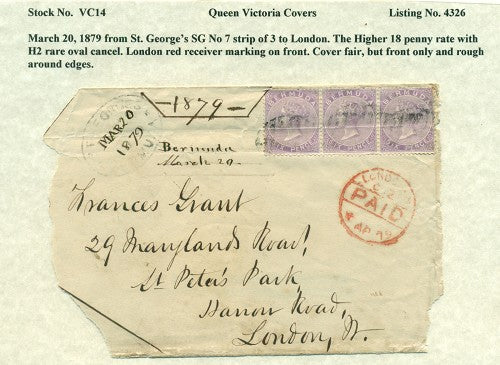 Stock No. VC14 Queen Victoria Covers Listing No. 4326
March 20, 1879 from St. George's SG No 7 strip of 3 to London. The Higher 18 penny rate with
H2 rare oval cancel. London red receiver marking on front. Cover fair, but front only and rough
around edges.
MAR 20
1879
-1879-
BERMUDA BERMUDA BERMUDA
SIX PENCE
Bermuda
March 20
LONDON
PAID
4 AP 79
Frances Grant
29 Marylands Road,
St Peter's Park
Harrow Road,
London, W.